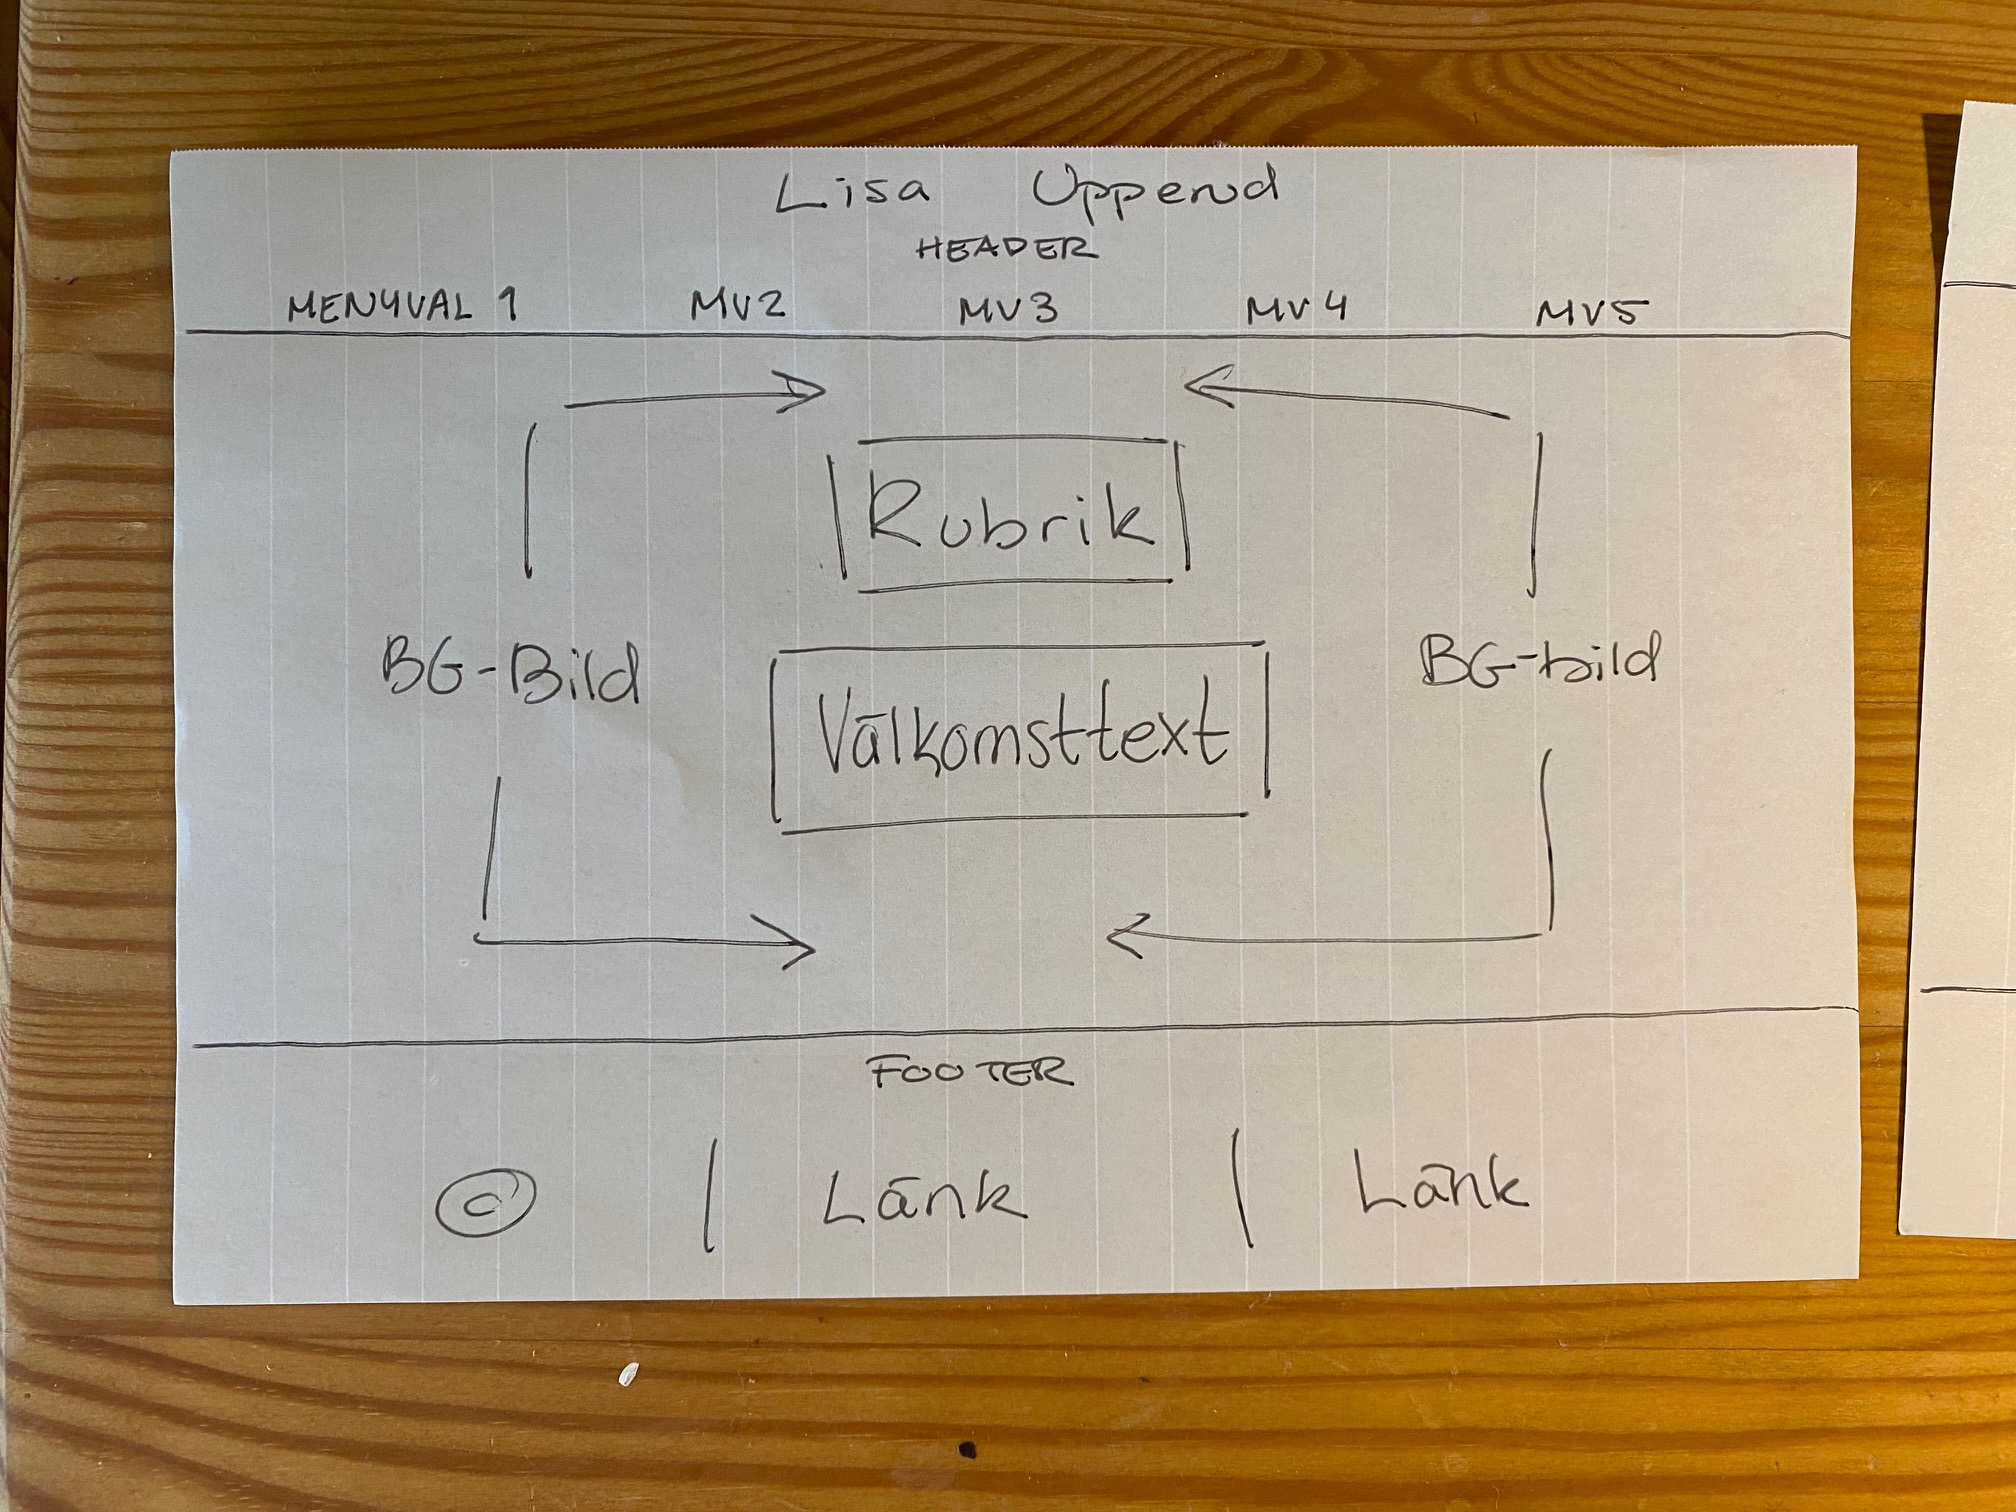 Lisa Uppenud
HEADER
MENYVAL 1 MV2 MV3 MV4 MV5
Rubrik
BG-Bild Välkomsttext BG-bild
FOOTER
© | Länk | Länk